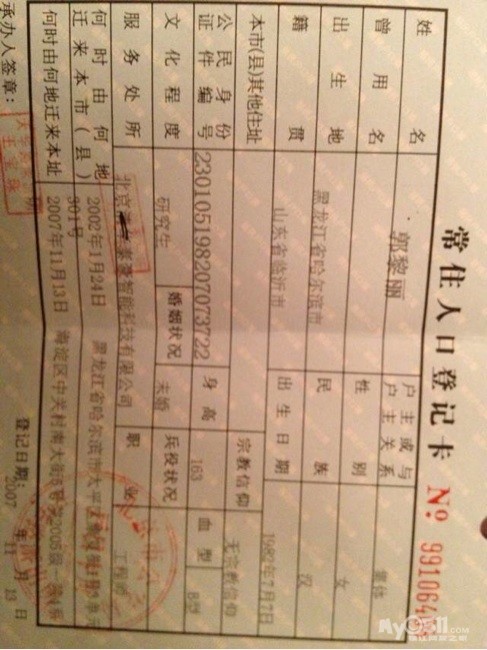 常住人口登记卡
No 991064
姓名 郭黎丽 户主或与户主关系 集体
曾用名 性别 女
出生地 黑龙江省哈尔滨市 民族 汉
籍贯 山东省临沂市 出生日期 1982年7月7日
本市(县)其他住址 宗教信仰 无宗教信仰
公民身份证件编号 230105198207073722 身高 163 血型 B型
文化程度 研究生 婚姻状况 未婚 兵役状况
服务处所 北京 泰豪智能科技有限公司 职业 工程师
何时由何地迁来本市(县) 2002年1月24日 黑龙江省哈尔滨市太平区 单元
301号
何时由何地迁来本址 2007年11月13日 海淀区中关村南大街5号 2005级
承办人签章: 登记日期: 2007 年 11 月 13 日
MyO511.com